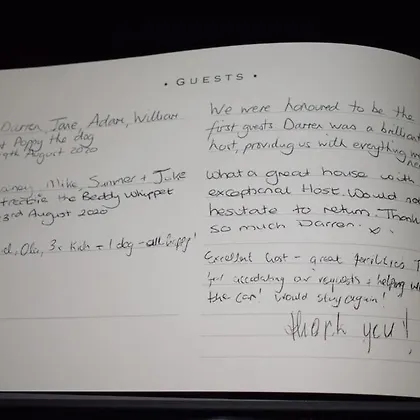 • GUESTS •
Darren, Jane, Adam, William
Poppy the dog
August 2020
Mike, Summer + Jake
the Beddy Whippet
3rd August 2020
3x Kids + 1 dog - all happy!
We were honoured to be the
first guests Darren was a brilliant
host, providing us with everything we
What a great house with
exceptional Host. Would not
hesitate to return. Thank
so much Darren. x
Excellent host - great facilities
for our requests + helping
the car! Would stay again!
thank you!